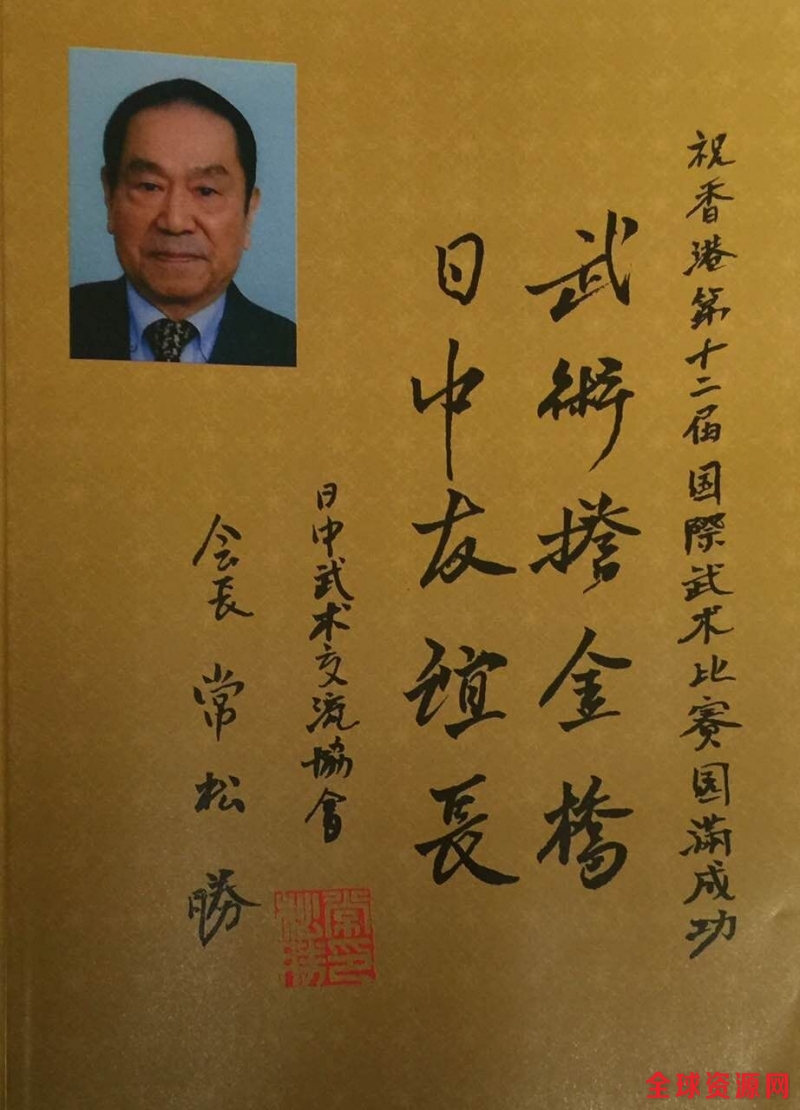 祝香港第十二届国際武术比赛园满成功
武術搭金橋
日中友谊長
日中武术交流協會
会长 常松勝
全球资源网